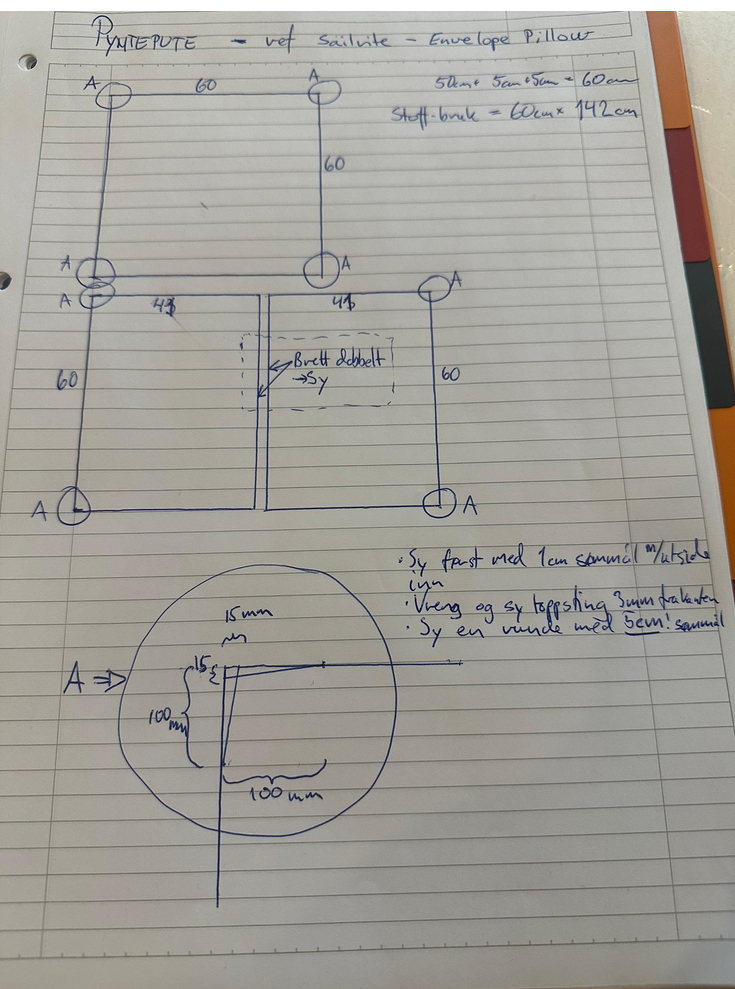 PYNTEPUTE - ref Sailrite - Envelope Pillow
A 60 A
50cm + 5cm + 5cm = 60cm
Stoff-bruk = 60cm x 142cm
60
A A
A 41 41 A
Brett dobbelt
→ Sy
60 60
A A
· Sy først med 1cm sømmål m/utside
inn
· Vreng og sy toppsting 3mm fra kanten
· Sy en runde med 5cm! sømmål
15mm
A ⇒ 15
100
mm
100mm